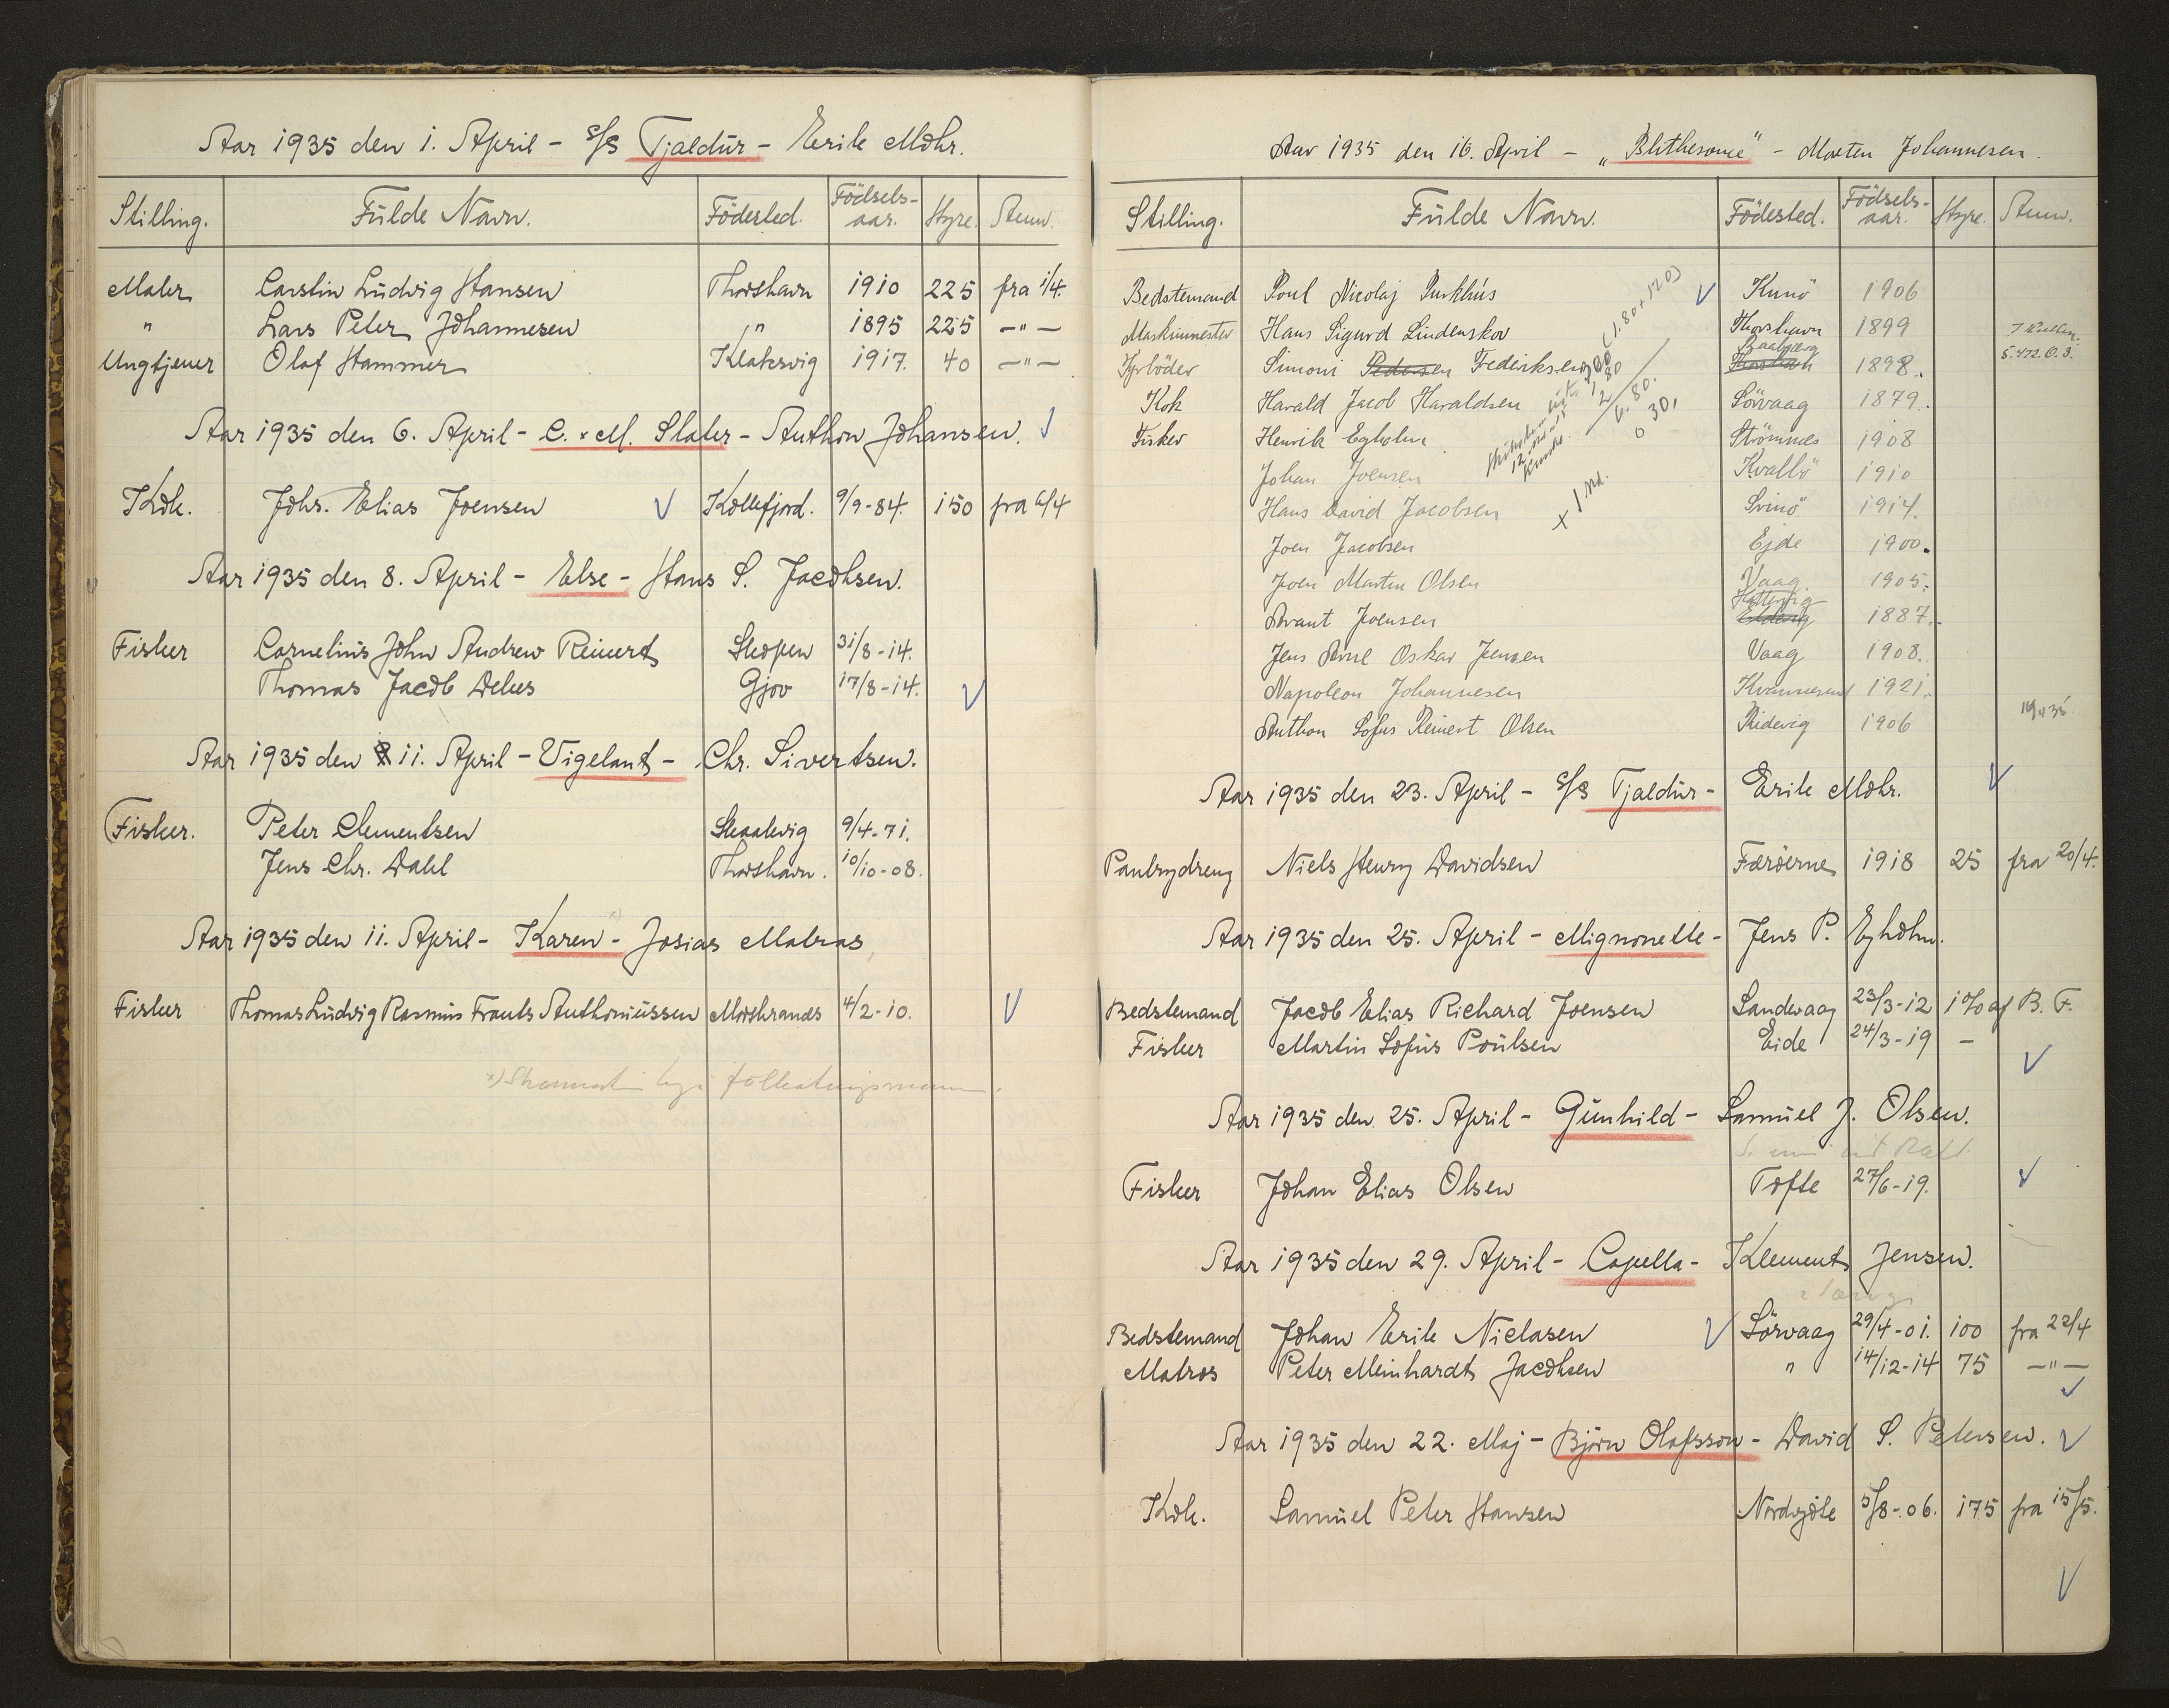 Aar 1935 den 1. April - s/s Tjaldur - Erik Mohr.
Stilling. Fulde Navn. Födested. Födsels-aar. Hyre. Anm.
Maler Carstin Ludvig Hansen Thorshavn 1910 225 fra 1/4.
" Lars Peter Johannesen " 1895 225 -"-
Ungtjener Olaf Hammer Klaksvig 1917. 40 -"-
Aar 1935 den 6. April - C. x M. Slater - Anthon Johansen.
Kok. Johs. Elias Joensen Kollefjord. 9/9-84. 150 fra 6/4
Aar 1935 den 8. April - Else - Hans S. Jacobsen.
Fisker Cornelius John Andrew Reinert Skopen 31/8-14.
Thomas Jacob Debes Gjov 17/8-14.
Aar 1935 den 11. April - Vigelant - Chr. Sivertsen.
Fisker. Peter Clementsen Skaalevig 9/4-71.
Jens Chr. Dahl Thorshavn. 10/10-08.
Aar 1935 den 11. April - Karen - Josias Matras
Fisker Thomas Ludvig Rasmus Frants Anthoniussen Morskranes 4/2-10.
Aar 1935 den 16. April - "Blithesome" - Morten Johannesen.
Stilling. Fulde Navn. Födested. Födsels-aar. Hyre. Anm.
Bedstemand Poul Nicolaj Purkhús Kunö 1906
Maskinmester Hans Sigurd Lindenskov Thorshavn 1899
Fyrböder Simoni Pedersen Frederiksen 1898.
Kok Harald Jacob Haraldsen Sörvaag 1879.
Fisker Henrik Egholm Strömnæs 1908
Johan Joensen Kvalbö 1910
Hans David Jacobsen Svinö 1914.
x 1 Md.
Joen Jacobsen Ejde 1900.
Joen Martin Olsen Vaag. 1905.
Joensen 1887.
Jens Oskar Jensen Vaag 1908.
Napoleon Johannesen 1921.
Anthon Sofus Reinert Olsen 1906
Aar 1935 den 23. April - s/s Tjaldur - Erik Mohr.
Pantrydreng Niels Henry Davidsen Færöerne 1918 25 fra 20/4.
Aar 1935 den 25. April - Mignonette - Jens P. Egholm.
Bedstemand Jacob Elias Richard Joensen Sandevaag 23/3-12 1% af B. F.
Fisker Martin Sofus Poulsen Eide 24/3-19 -
Aar 1935 den 25. April - Gunhild - Samuel J. Olsen.
Fisker Johan Elias Olsen Tofte 27/6-19.
Aar 1935 den 29. April - Capella - Klement Jensen.
Bedstemand Johan Erik Niclasen Sörvaag 29/4-01. 100 fra 22/4
Matros Peter Meinhardt Jacobsen " 14/12-14 75 -"-
Aar 1935 den 22. Maj - Björn Olafsson - David S. Petersen.
Kok. Samuel Peter Hansen Nordrgöte 5/8-06. 175 fra 15/5.